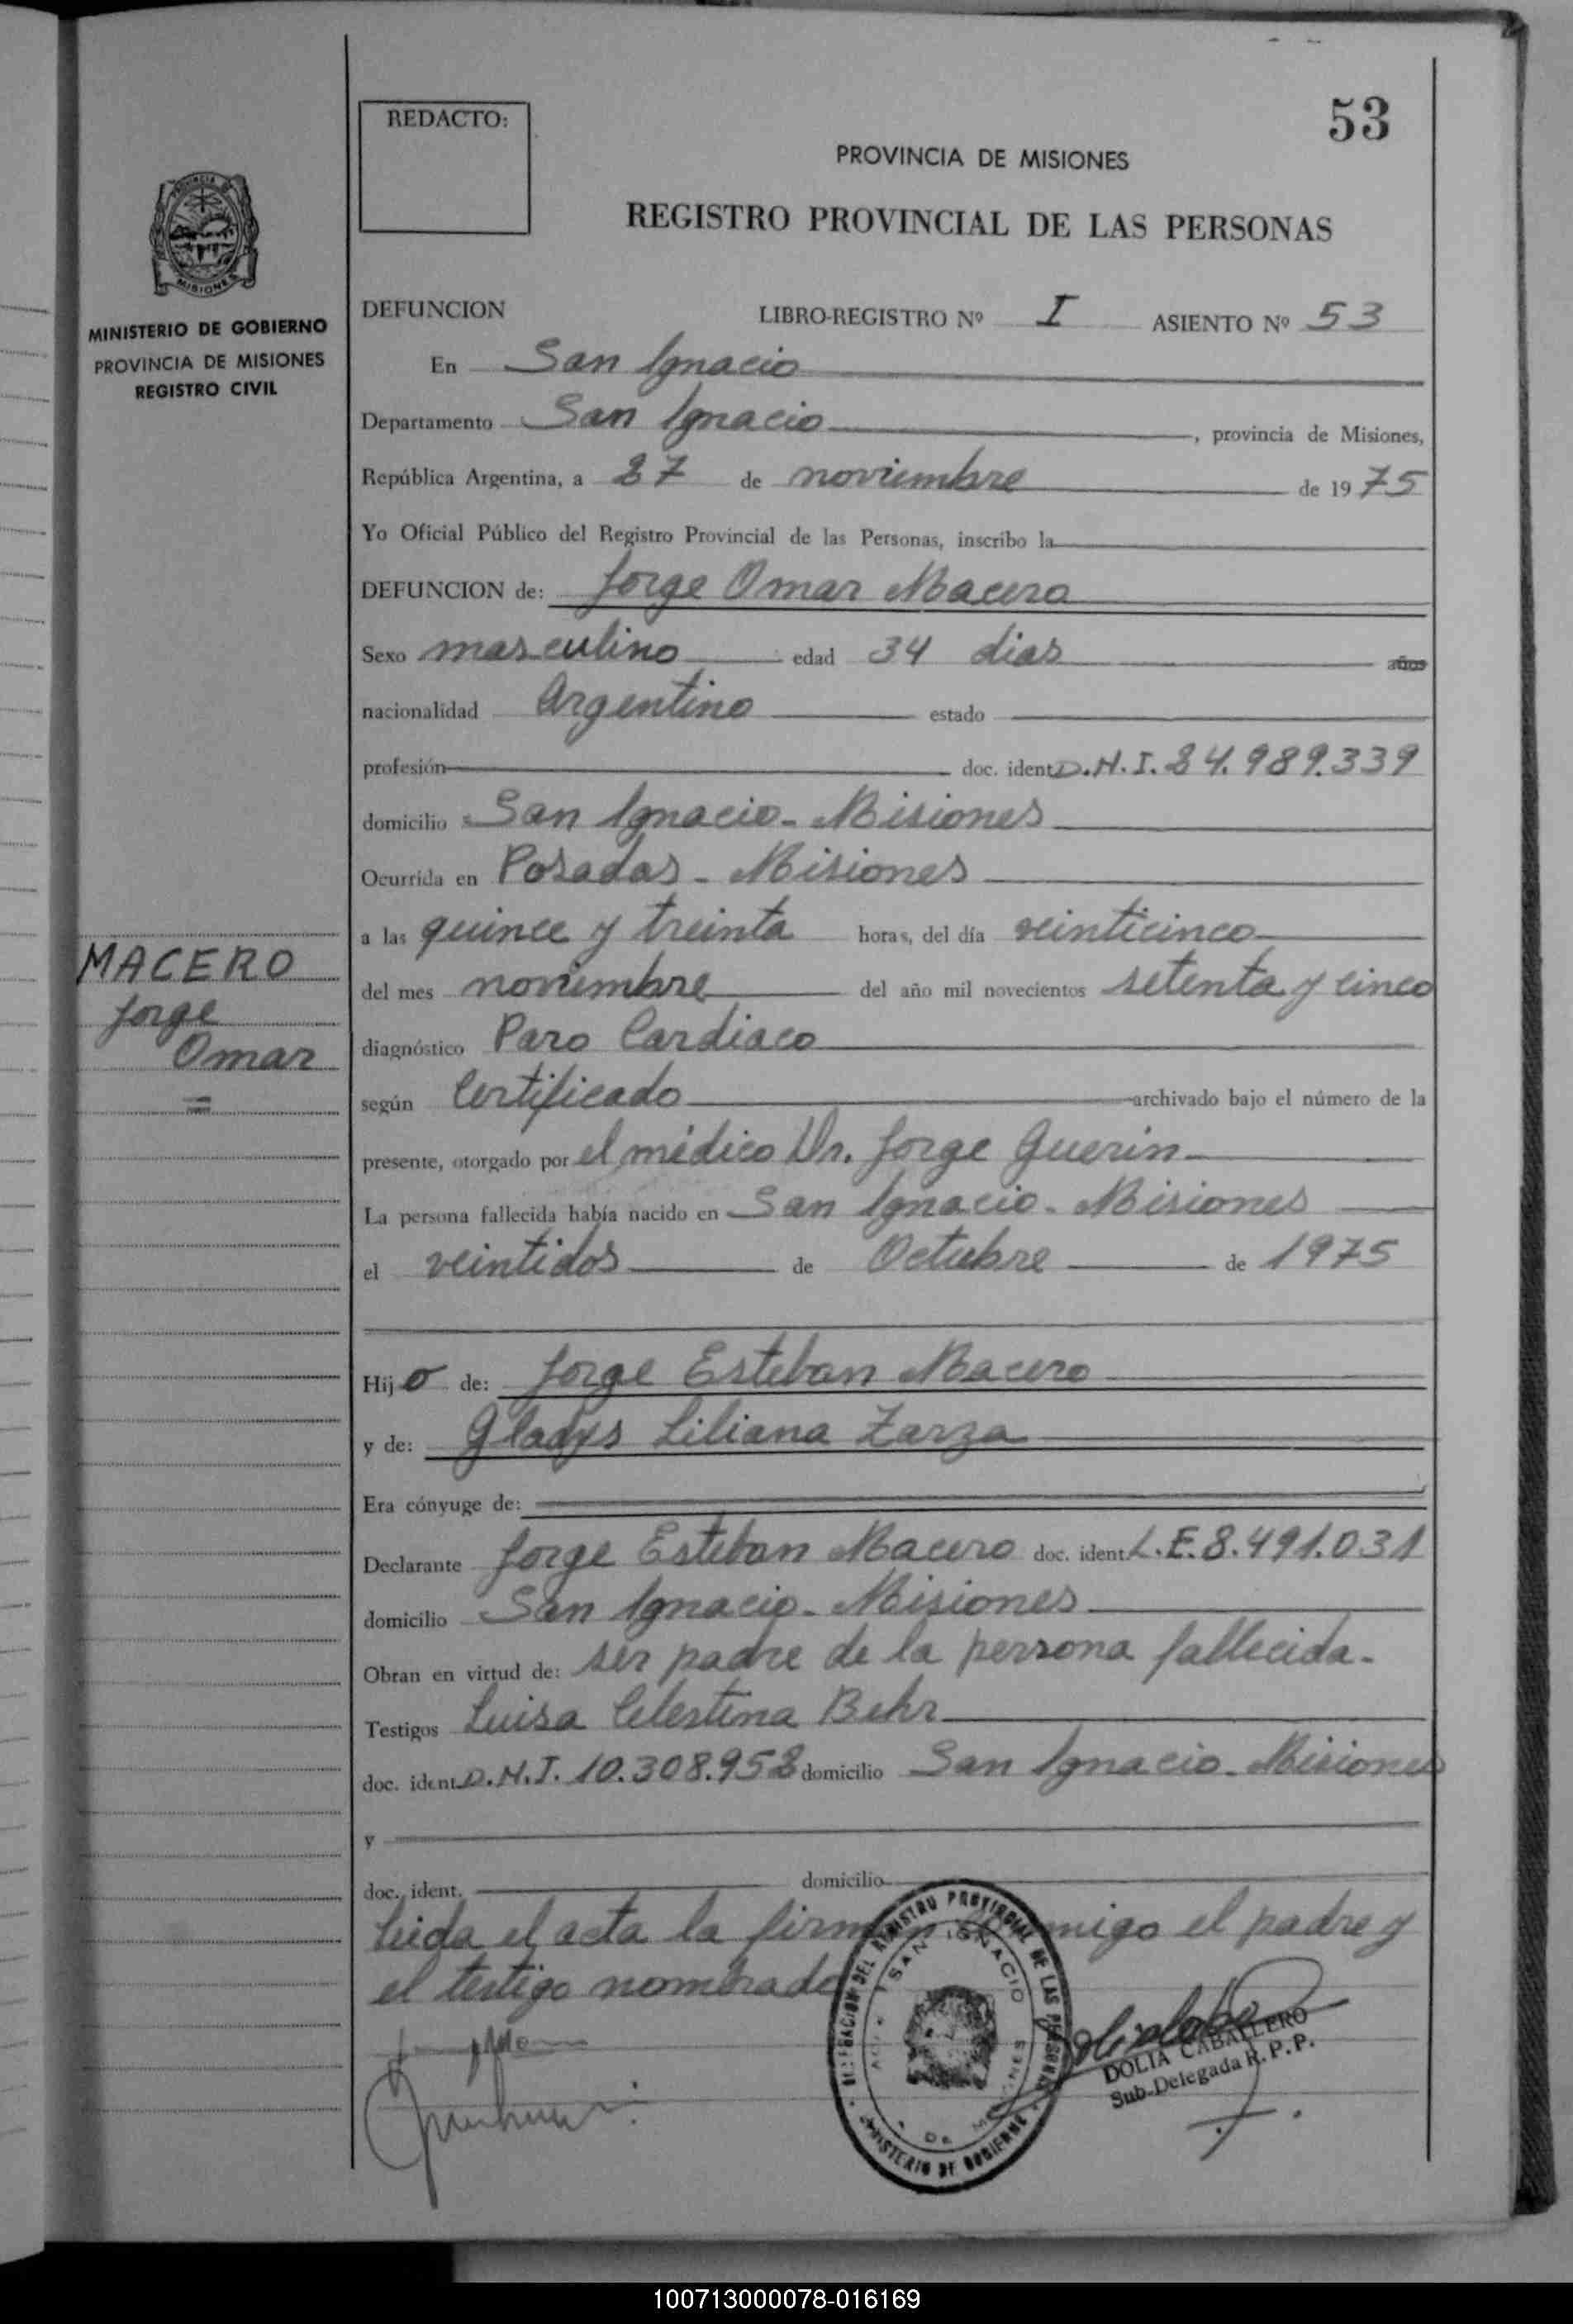 53
REDACTO:
PROVINCIA DE MISIONES
REGISTRO PROVINCIAL DE LAS PERSONAS
PROVINCIA DE
MISIONES
MINISTERIO DE GOBIERNO
PROVINCIA DE MISIONES
REGISTRO CIVIL
DEFUNCION LIBRO-REGISTRO Nº I ASIENTO Nº 53
En San Ignacio
Departamento San Ignacio, provincia de Misiones,
República Argentina, a 27 de noviembre de 1975
Yo Oficial Público del Registro Provincial de las Personas, inscribo la
DEFUNCION de: Jorge Omar Macero
Sexo masculino edad 34 dias años
nacionalidad Argentino estado
profesión doc. ident. D.N.I. 24.989.339
domicilio San Ignacio - Misiones
Ocurrida en Posadas - Misiones
a las quince y treinta horas, del día veinticinco
del mes noviembre del año mil novecientos setenta y cinco
diagnóstico Paro Cardiaco
según Certificado archivado bajo el número de la
presente, otorgado por el médico Dr. Jorge Guerin
La persona fallecida había nacido en San Ignacio - Misiones
el veintidos de Octubre de 1975
MACERO
Jorge
Omar
Hijo de: Jorge Esteban Macero
y de: Gladys Liliana Zarza
Era cónyuge de:
Declarante Jorge Esteban Macero doc. ident. L.E. 8.491.031
domicilio San Ignacio - Misiones
Obran en virtud de: ser padre de la persona fallecida.
Testigos Luisa Celestina Behr
doc. ident. D.N.I. 10.308.952 domicilio San Ignacio - Misiones
y
doc. ident. domicilio
Leida el acta la firman conmigo el padre y
el testigo nombrado
DELEGACION DEL REGISTRO PROVINCIAL DE LAS PERSONAS
SAN IGNACIO
MISIONES
MINISTERIO DE GOBIERNO
DOLIA CABALLERO
Sub-Delegada R.P.P.
100713000078-016169